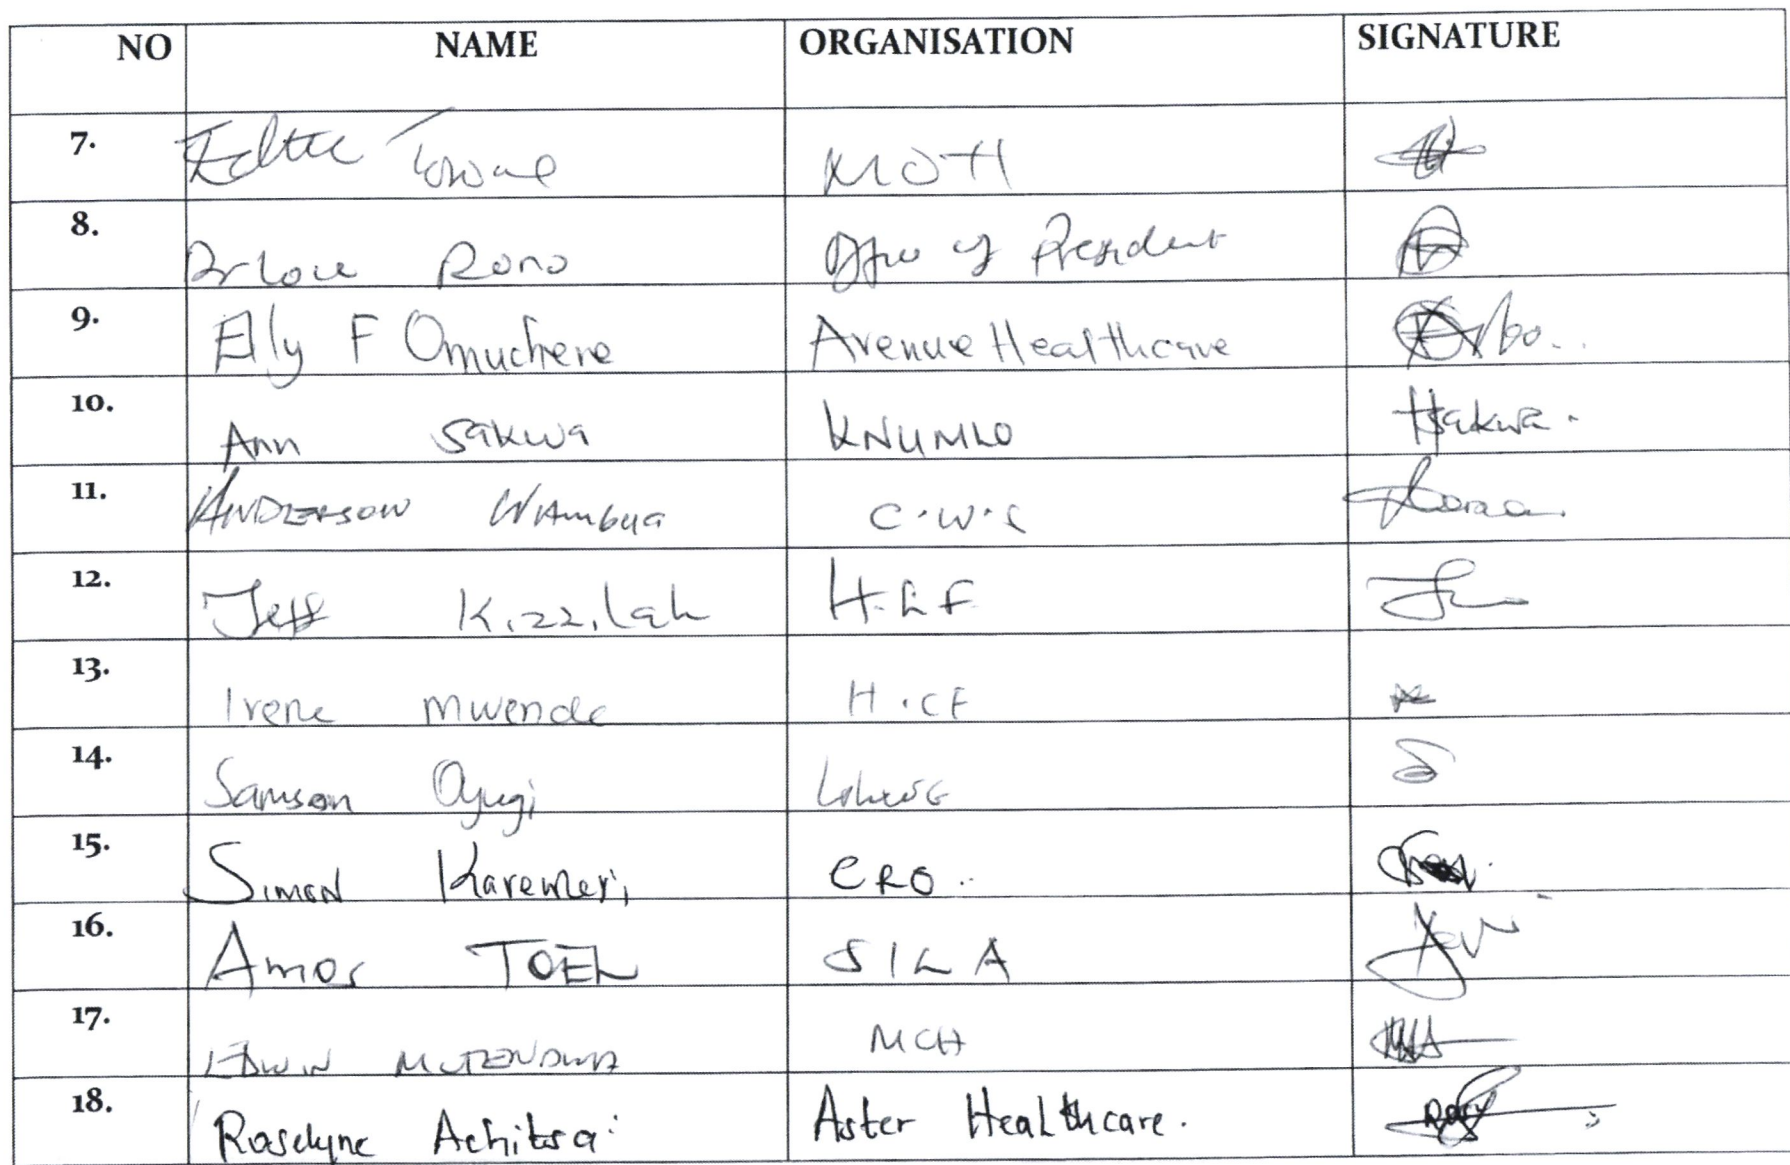 NO NAME ORGANISATION SIGNATURE
7. MOH
8. Rono Office of President
9. Elly F Omuchere Avenue Healthcare
10. Ann Sakwa KNUMLO Hsakwa.
11. ANDERSON WAmbua C.W.S
12. Jeff Kizzilah H.L.F
13. Irene Mwende H.CF
14. Samson Oyugi
15. SIMON Karemeri CRO..
16. Amos TOEL SILA
17. EDWIN MCH
18. Roselyne Achitsa Aster Healthcare.